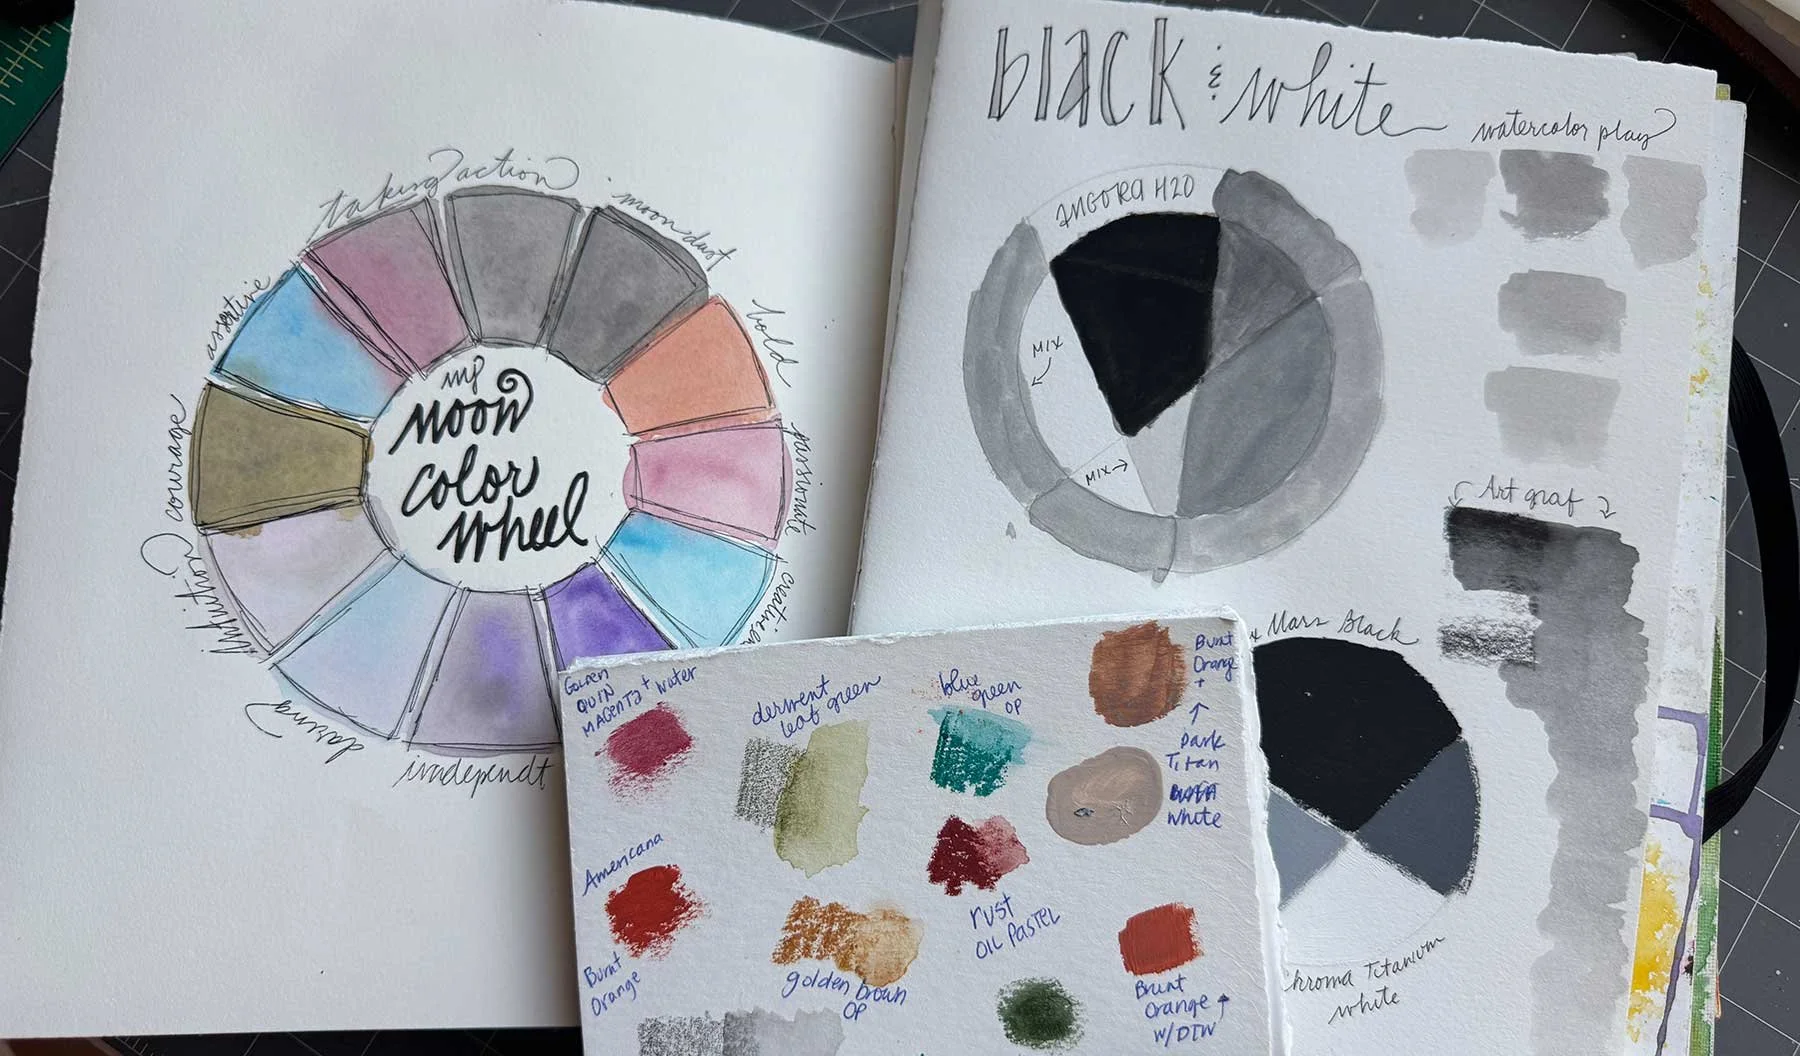 my
moon
color
wheel
taking action
moon dust
bold
passionate
independt
daring
intuition
courage
assertive
black & white
watercolor play
ANGORA H2O
MIX
MIX
Art graf
Mars Black
chroma Titanium
white
GOLDEN
QUIN
MAGENTA + water
derwent
leaf green
blue
green
OP
Burnt
Orange
+
Dark
Titan
White
Americana
Burnt
Orange
golden brown
OP
rust
OIL PASTEL
Brunt
Orange
W/DTW